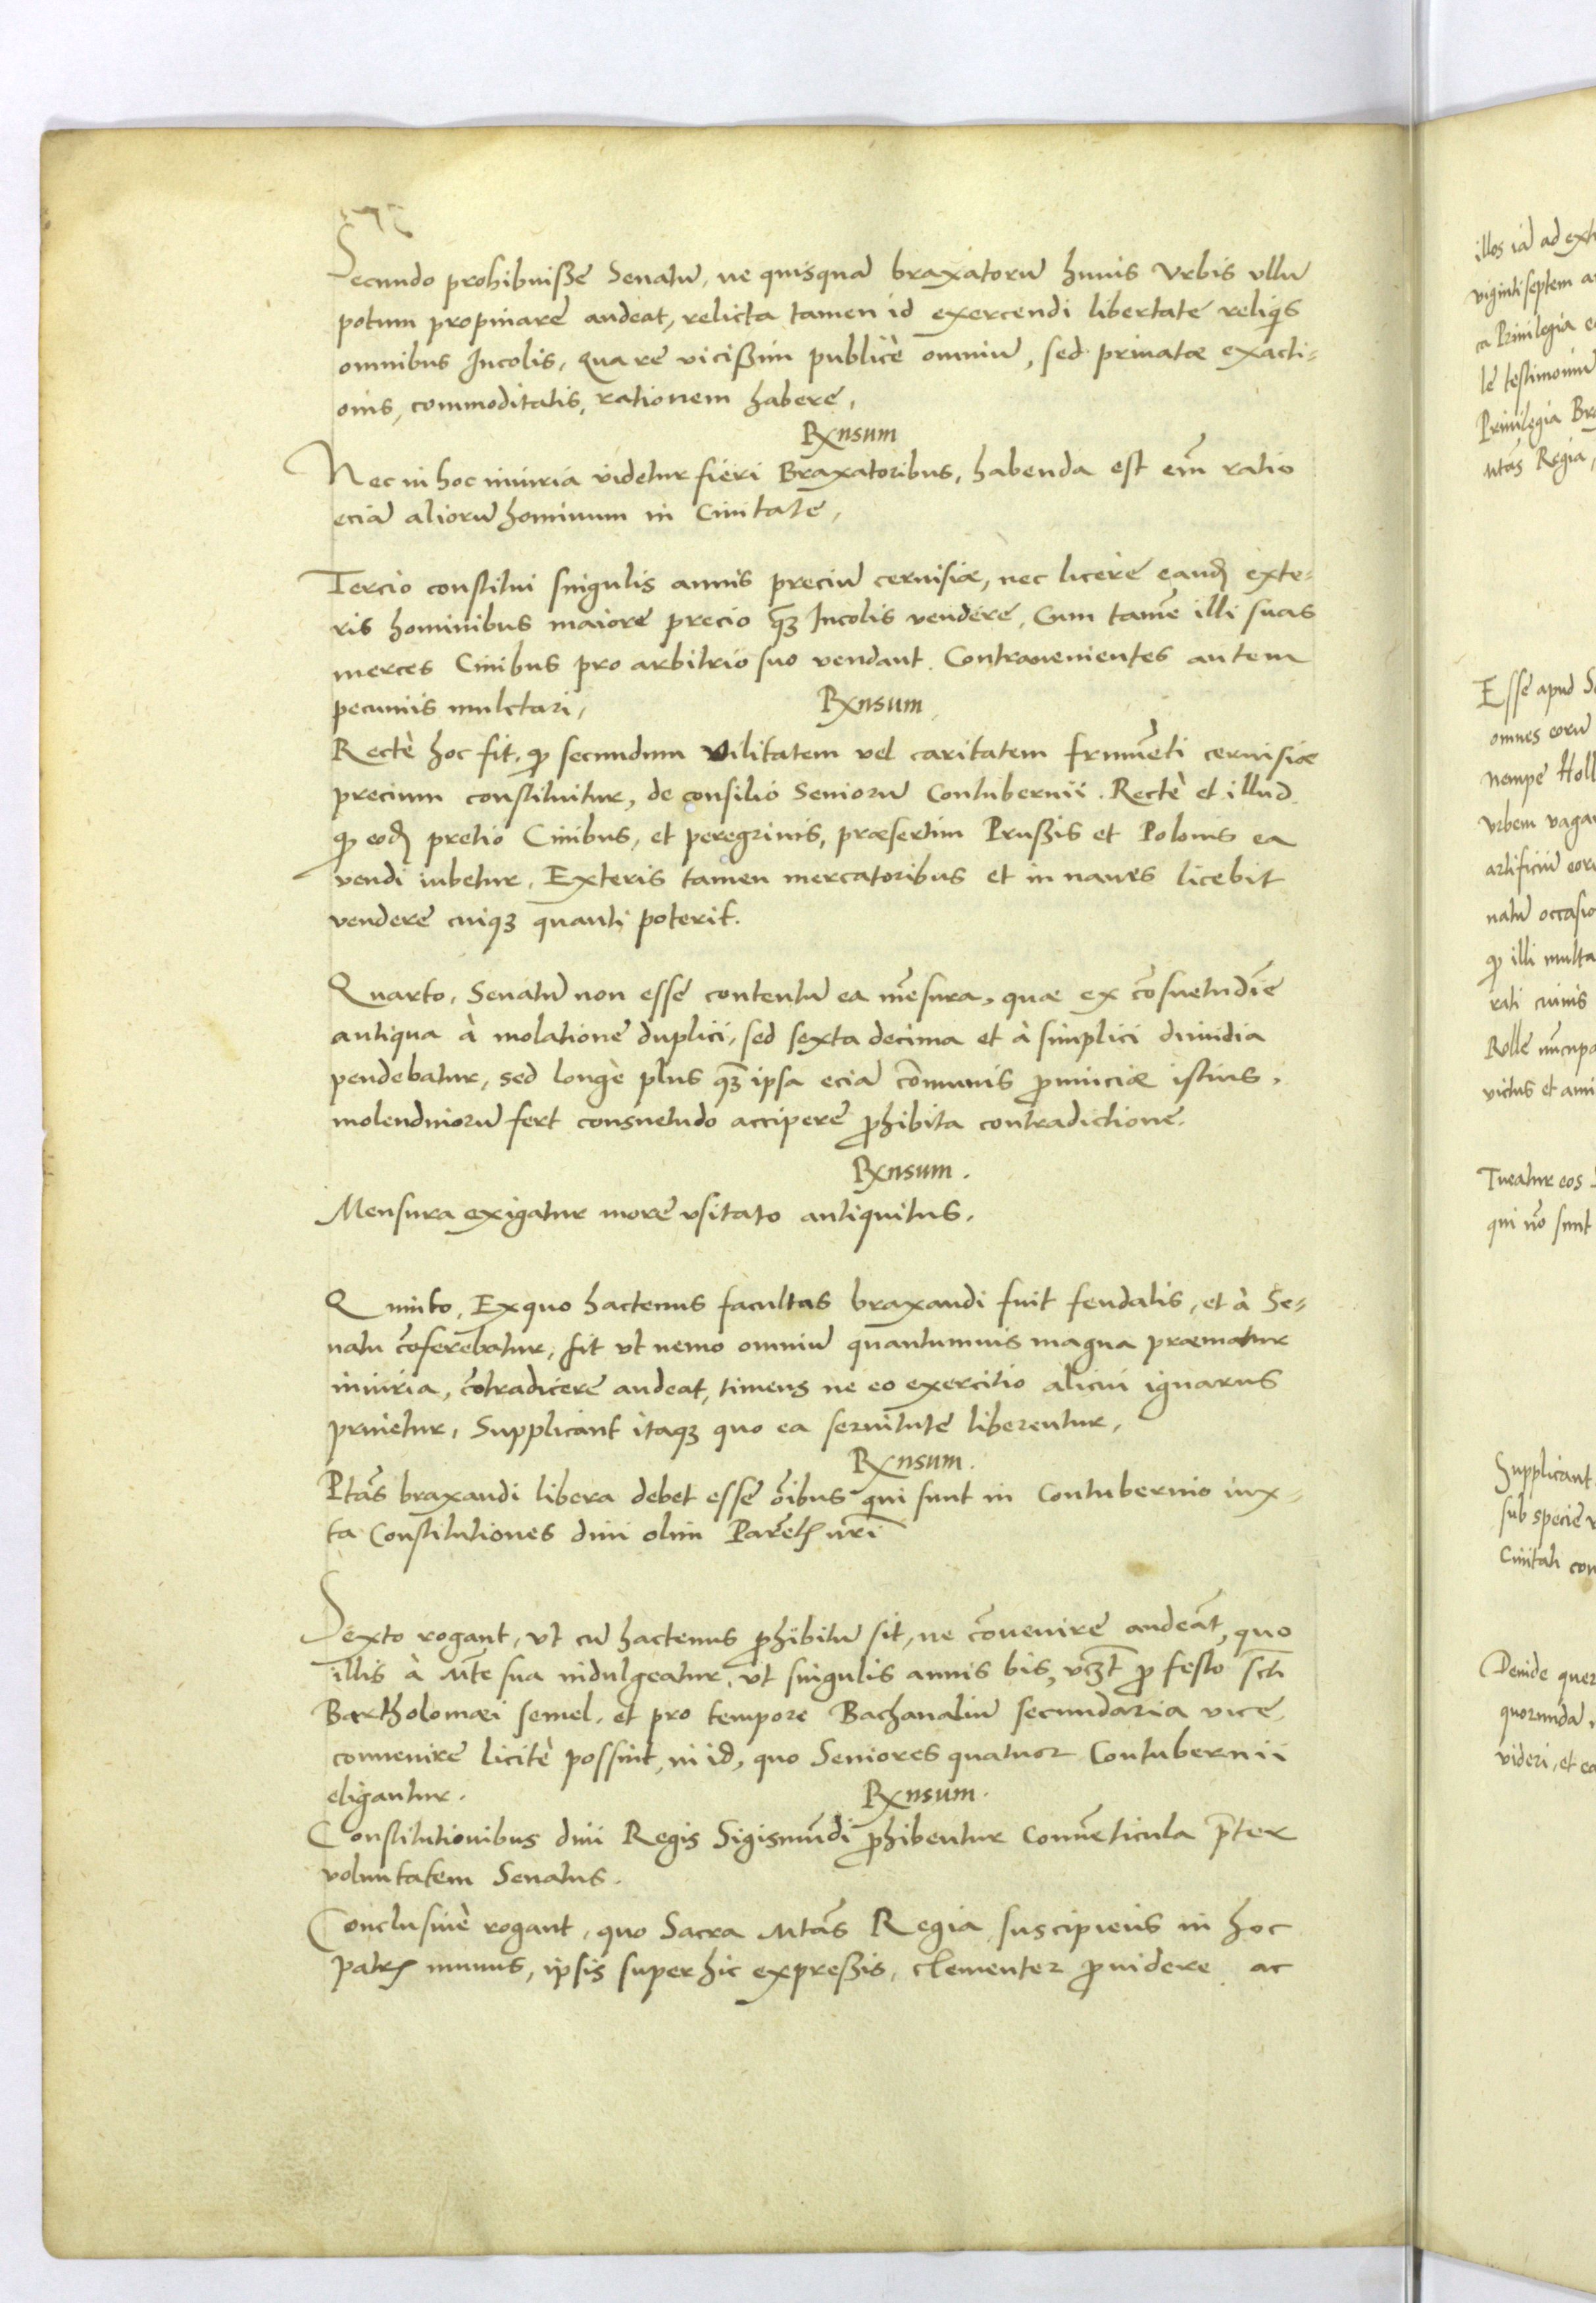 Secundo prohibuiße Senatũ, ne quisquã braxatorũ huius Vrbis vllũ
potum propinare audeat, relicta tamen id exercendi libertate reliqis
omnibus Incolis, Qua re vicißim publicè omniũ, sed priuatæ exacti=
onis, commoditatis, rationem habere,
Rx̃nsum
Nec in hoc iniuriã videtur fieri Braxatoribus, habenda est em̃ ratio
eciã aliorũ hominum in Ciuitate,
Tercio constitui singulis annis preciũ ceruisiæ, nec licere eandẽ exte=
ris hominibus maiore precio qꝫ Incolis vendere, Cum tamẽ illi suas
merces Ciuibus pro arbitrio suo vendant. Contrauenientes autem
pecuniis mulctari,
Rxnsum
Rectè hoc fit, qꝫ secundum vilitatem vel caritatem frumẽti ceruisiæ
precium constituitur, de consilio Seniorũ Contubernii. Rectè et illud
qꝫ eodẽ pretio Ciuibus, et peregrinis, præsertim Prußis et Polonis ea
vendi iubetur, Exteris tamen mercatoribus et in naues licebit
vendere cuiqꝫ quanti poterit.
Quarto, Senatũ non esse contentũ ea mẽsura, quæ ex cõsuetudĩe
antiqua à molatione duplici, sed sexta decima et à simplici dimidia
pendebatur, sed longè plus qꝫ ipsa eciã cõmunis ꝓuinciæ istius,
molendinorũ fert consuetudo accipere ꝓhibita contradictione.
Rxnsum.
Mensura exigatur more vsitato antiquitus.
Quinto, Ex quo hactenus facultas braxandi fuit feudalis, et à Se=
natu cõferebatur, fit vt nemo omniũ quantumuis magna præmatur
iniuria, cõtradicere audeat, timens ne eo exercitio alicui ignarus
priuetur, Supplicant itaqꝫ quo ea seruitute liberentur,
Rxnsum.
Ptãs braxandi libera debet esse õibus qui sunt in Contubernio iux=
ta Constitutiones diui olim Parẽtꝭ nr̃i
Sexto rogant, vt cũ hactenus ꝓhibitũ sit, ne cõuenire audeãt, quo
illis à Mte sua indulgeatur, vt singulis annis bis, vꝫt ꝓ festo Scti
Bartholomæi semel, et pro tempore Bachanaliũ secundaria vice,
conuenire licitè possint, in id, quo Seniores quatuor Contubernii
eligantur.
Rxnsum.
Constitutionibus diui Regis Sigismũdi ꝓhibentur Conuẽticula p̃ter
voluntatem Senatus.
Conclusiuè rogant, quo Sacra Mtãs Regia suscipiens in hoc
patrꝭ munus, ipsis super hic expreßis, clementer ꝓuidere ac
illos iã ad ext
viginti septem a
ca Priuilegia e
le testimoniũ
Priuilegia Br
Mtas Regia,
Esse apud S
omnes eorũ
nempe Holl
vrbem vaga
artificiũ eor
natũ occasio
qꝫ illi multa
rati ciuis
Rolle nũcupa
victus et ami
Tueatur eos
qui nõ sunt
Supplicant
sub specie
Ciuitati con
Deinde quer
quorundã
videri, et ea